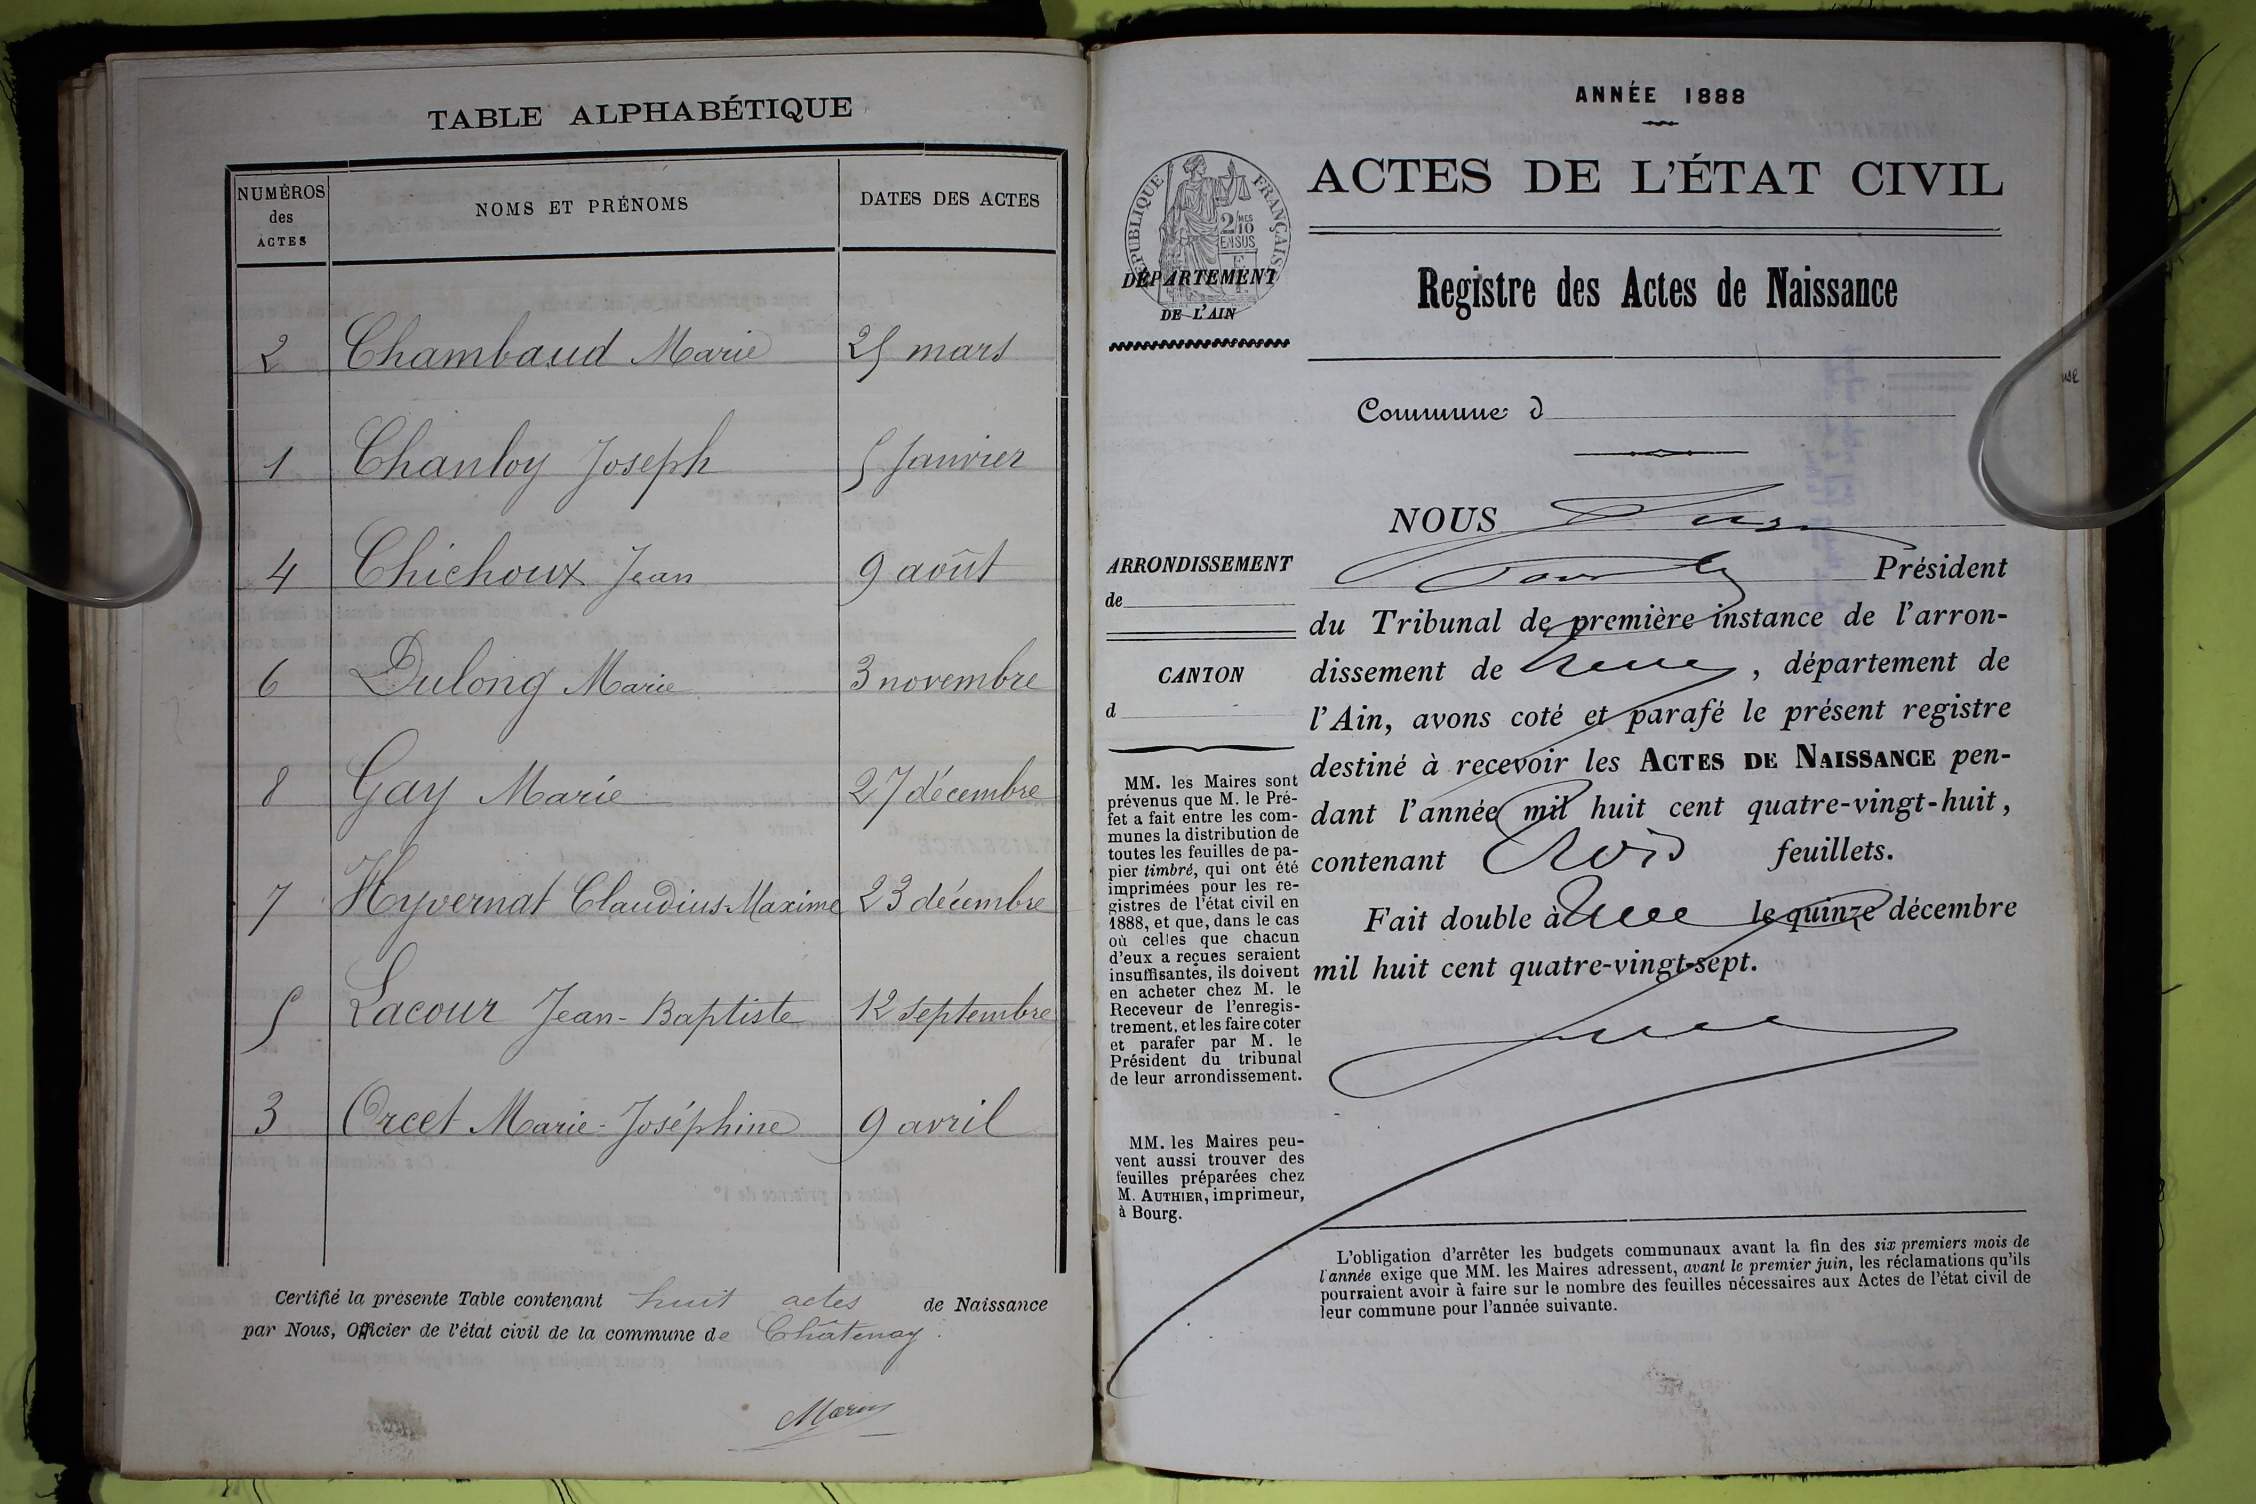 TABLE ALPHABÉTIQUE
NUMÉROS
des
ACTES
NOMS ET PRÉNOMS
DATES DES ACTES
2 Chambaud Marie 25 mars
1 Chanloy Joseph 5 Janvier
4 Chichoux Jean 9 août
6 Dulong Marie 3 novembre
8 Gay Marie 27 décembre
7 Hyvernat Claudius-Maxime 23 décembre
5 Lacour Jean-Baptiste 12 septembre
3 Orcet Marie-Joséphine 9 avril
Certifié la présente Table contenant huit actes de Naissance
par Nous, Officier de l'état civil de la commune de Châtenay.
ANNÉE 1888
RÉPUBLIQUE FRANÇAISE
2 MES
10
EN SUS
DÉPARTEMENT
DE L'AIN
ACTES DE L'ÉTAT CIVIL
Registre des Actes de Naissance
Commune d
ARRONDISSEMENT
de
CANTON
d
MM. les Maires sont
prévenus que M. le Pré-
fet a fait entre les com-
munes la distribution de
toutes les feuilles de pa-
pier timbré, qui ont été
imprimées pour les re-
gistres de l'état civil en
1888, et que, dans le cas
où celles que chacun
d'eux a reçues seraient
insuffisantes, ils doivent
en acheter chez M. le
Receveur de l'enregis-
trement, et les faire coter
et parafer par M. le
Président du tribunal
de leur arrondissement.
MM. les Maires peu-
vent aussi trouver des
feuilles préparées chez
M. AUTHIER, imprimeur,
à Bourg.
NOUS
Président
du Tribunal de première instance de l'arron-
dissement de , département de
l'Ain, avons coté et parafé le présent registre
destiné à recevoir les ACTES DE NAISSANCE pen-
dant l'année mil huit cent quatre-vingt-huit,
contenant trois feuillets.
Fait double à le quinze décembre
mil huit cent quatre-vingt-sept.
L'obligation d'arrêter les budgets communaux avant la fin des six premiers mois de
l'année exige que MM. les Maires adressent, avant le premier juin, les réclamations qu'ils
pourraient avoir à faire sur le nombre des feuilles nécessaires aux Actes de l'état civil de
leur commune pour l'année suivante.